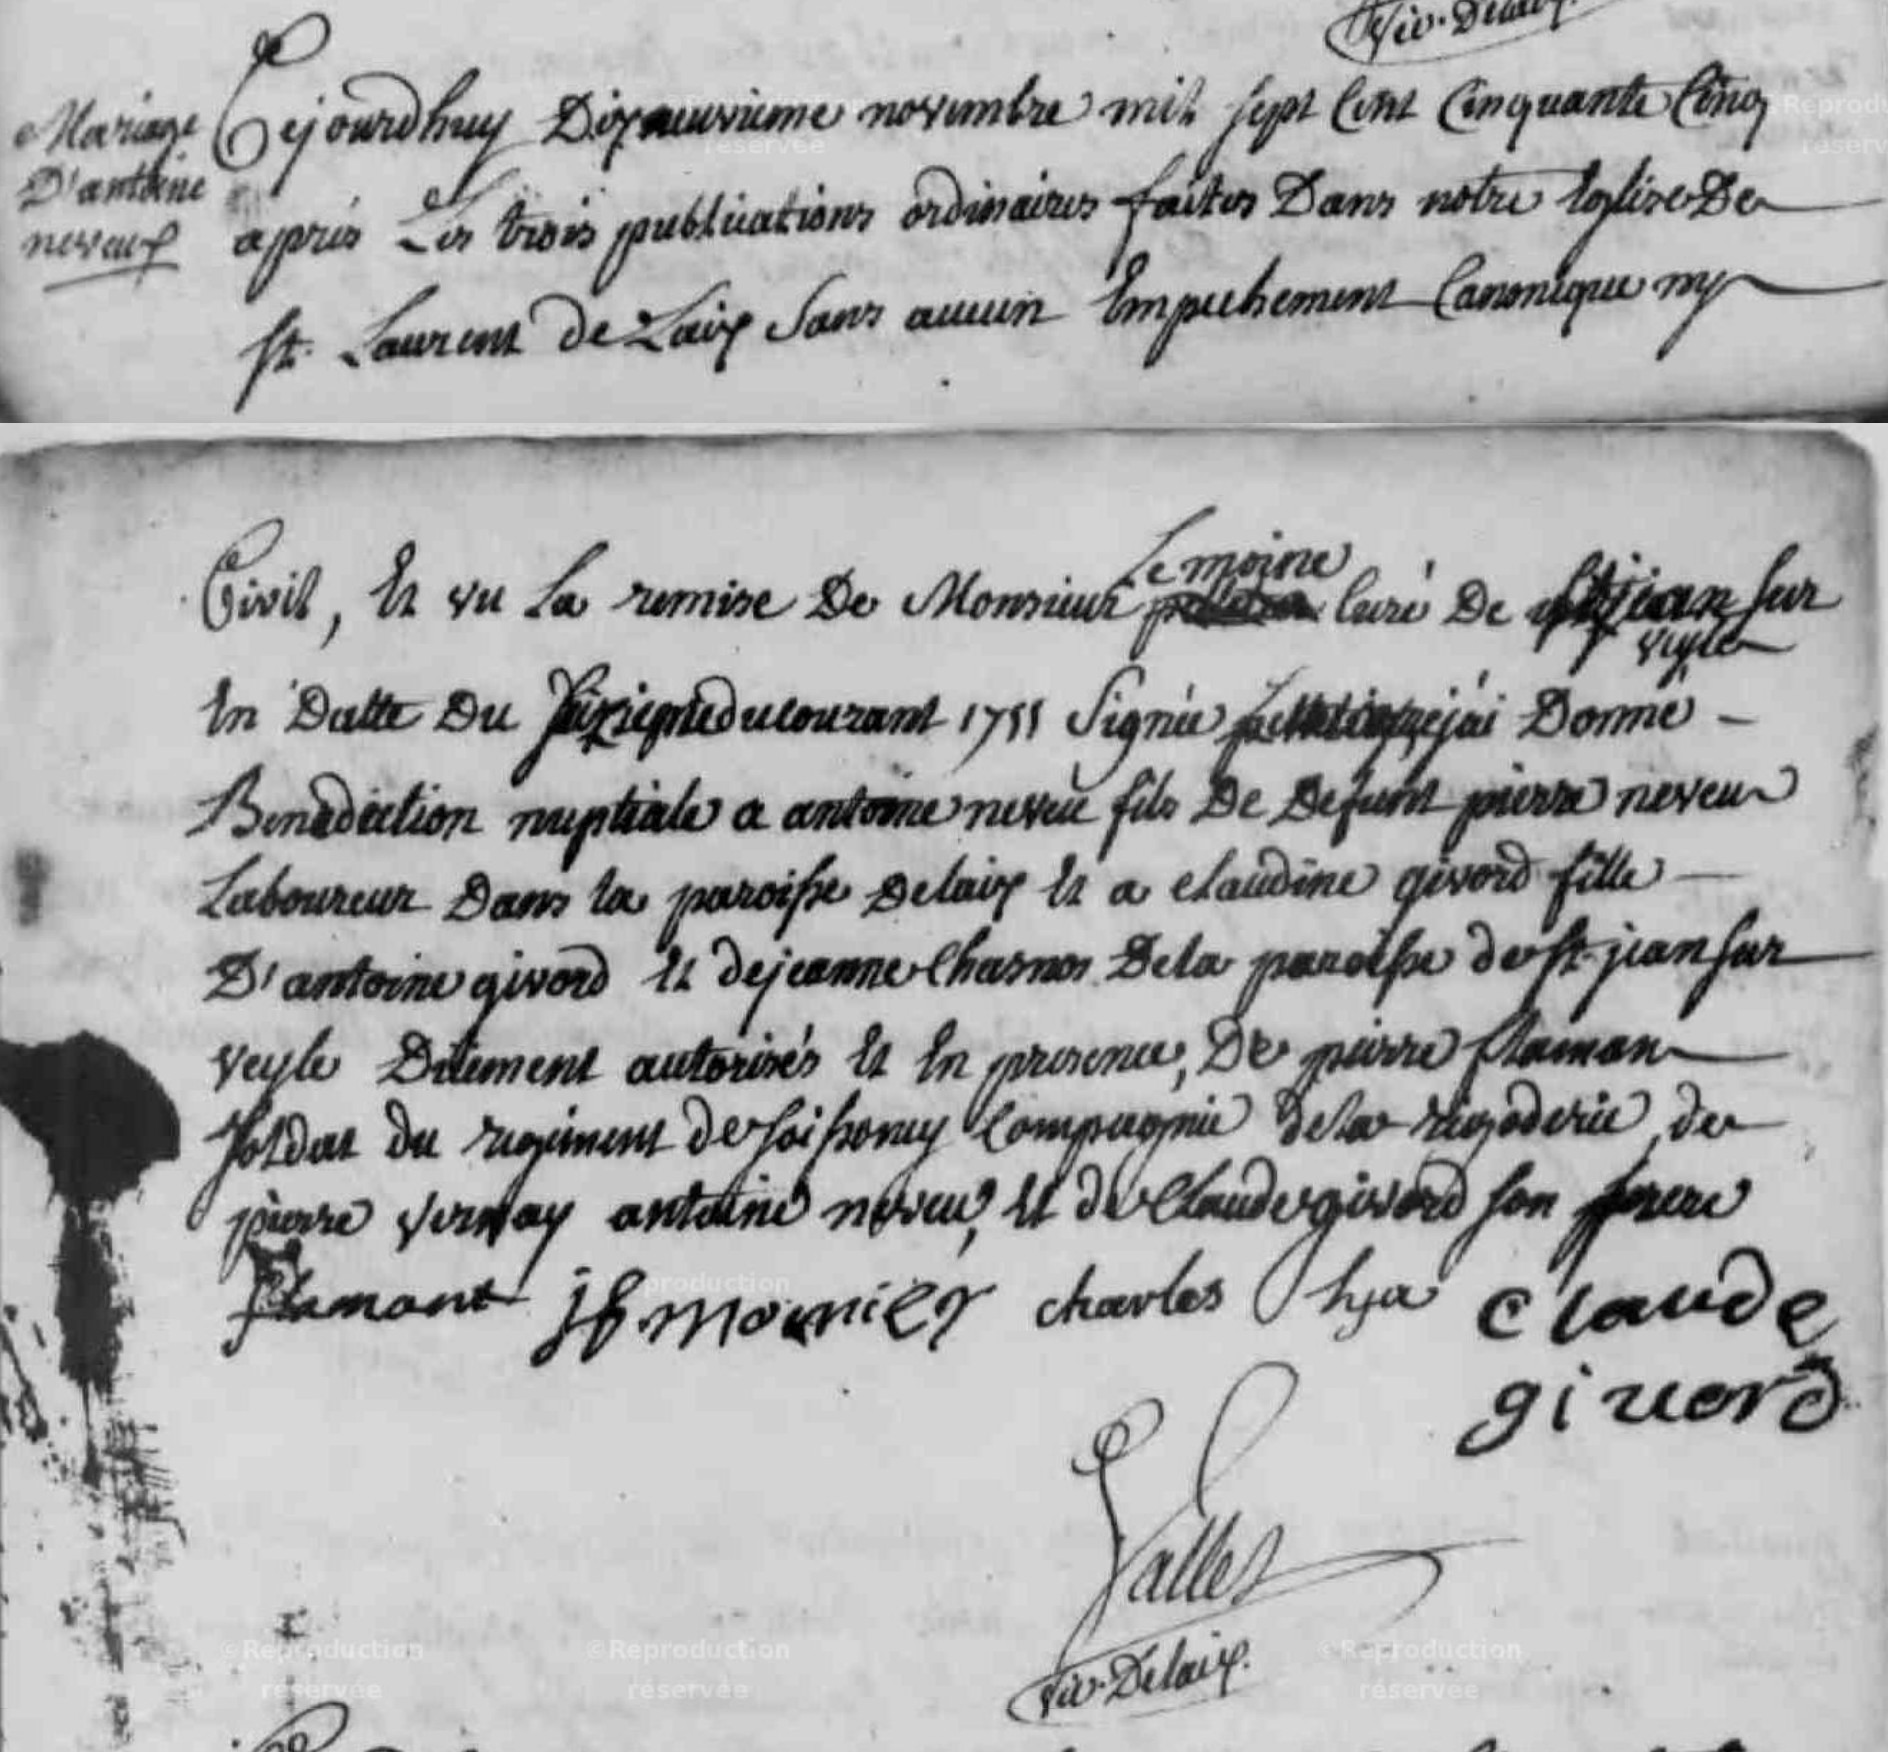 vic. Delaix.
Mariage
D'antoine
neveux
Cejourdhuy Dixneuvieme novembre mil sept Cent Cinquante Cinq
apres Les trois publications ordinaires faites Dans notre Eglise De
st. Laurent de Laix Sans aucun Empechement Canonique ny
Civil, Et vu La remise De Monsieur Lemoine Curé De st jean sur
veyle
En Datte Du ducourant 1755 Signée j'ai Donné
Benediction nuptiale a antoine neveu fils De Defunt pierre neveu
Laboureur Dans la paroisse Delaix Et a claudine givord fille
D'antoine givord Et dejeanne Charnos Dela paroisse de st jean sur
veyle Dûement autorisés Et En presence, De pierre flaman
soldat du regiment de soissoney Compagnie dela de
pierre vernay antoine neveu, Et de Claude givord son frere
flamant charles hya claude
givord
Vallet
vic. Delaix.
©Reproduction réservée
©Reproduction réservée
©Reproduction réservée